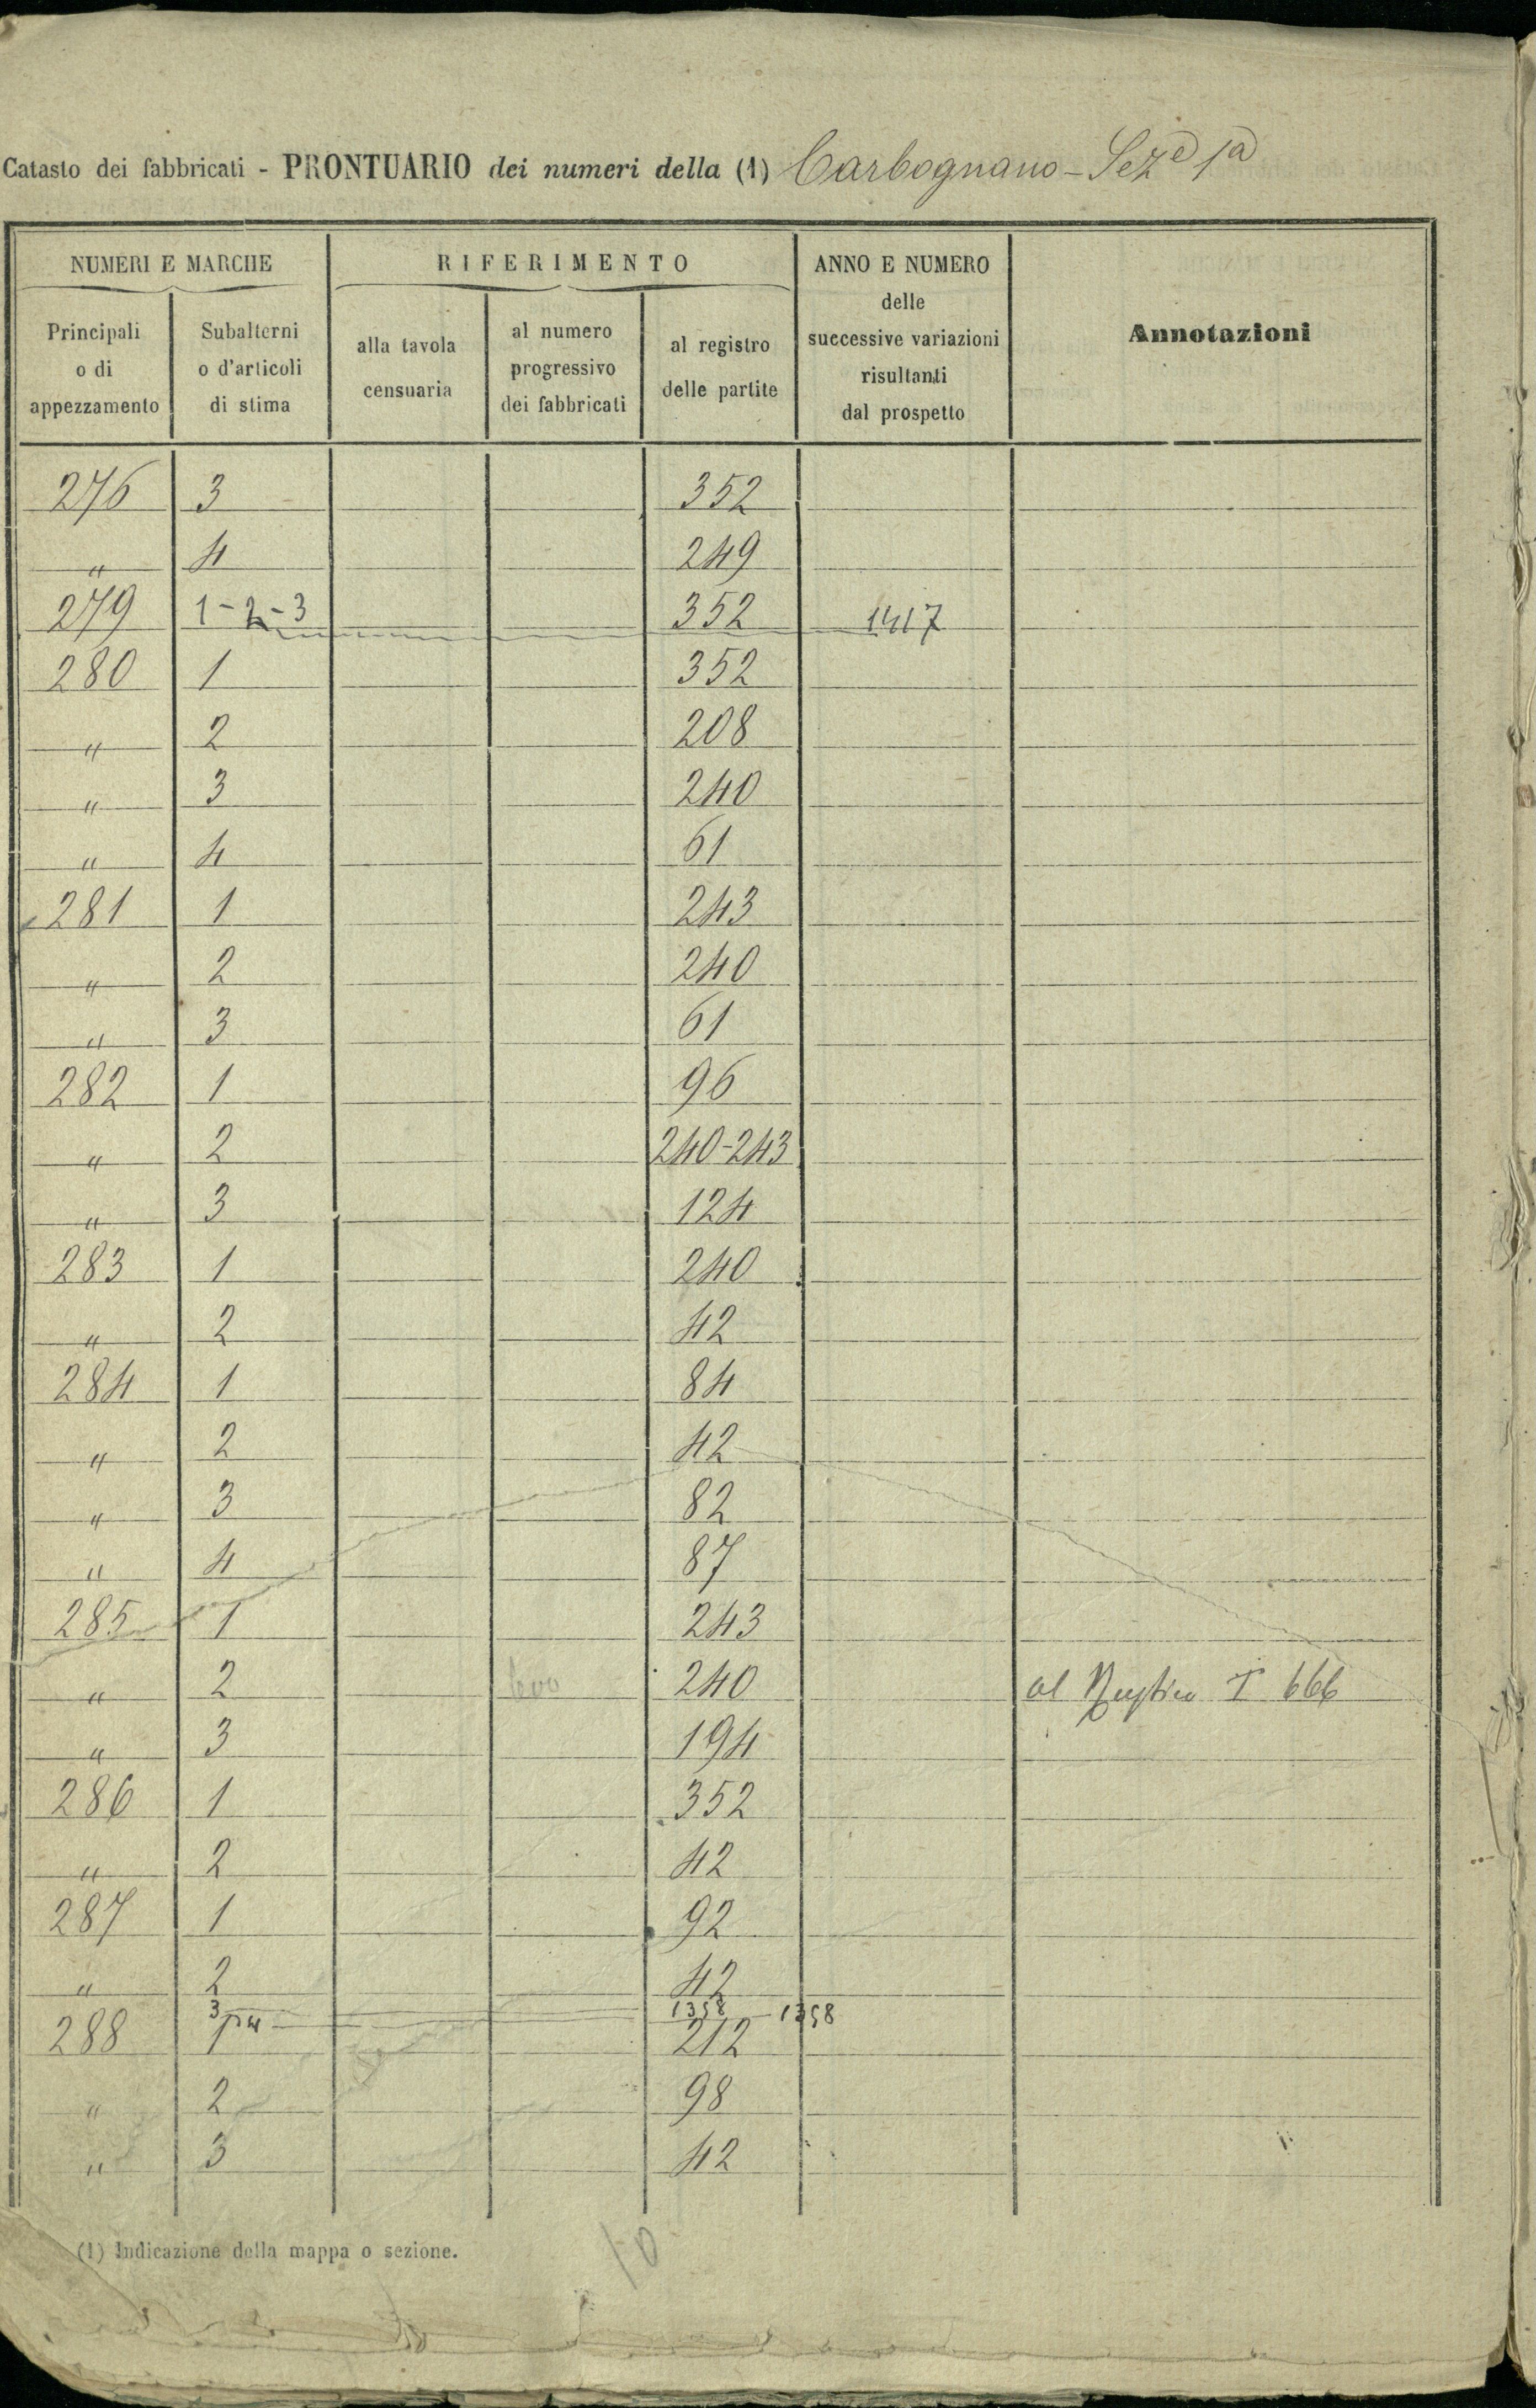 Catasto dei fabbricati - PRONTUARIO dei numeri della (1) Carbognano - Sez.e 1a
NUMERI E MARCHE
RIFERIMENTO
ANNO E NUMERO
delle
successive variazioni
risultanti
dal prospetto
Annotazioni
Principali
o di
appezzamento
Subalterni
o d'articoli
di stima
alla tavola
censuaria
al numero
progressivo
dei fabbricati
al registro
delle partite
276 3 352
" 4 249
279 1-2-3 352 1417
280 1 352
" 2 208
" 3 240
" 4 61
281 1 243
" 2 240
" 3 61
282 1 96
" 2 240-243
" 3 124
283 1 240
" 2 42
284 1 84
" 2 42
" 3 82
" 4 87
285 1 243
" 2 240 al Rustico T 666
" 3 194
286 1 352
" 2 42
287 1 92
" 2 42
3 1358 1358
288 1 212
" 2 98
" 3 42
(1) Indicazione della mappa o sezione.
10